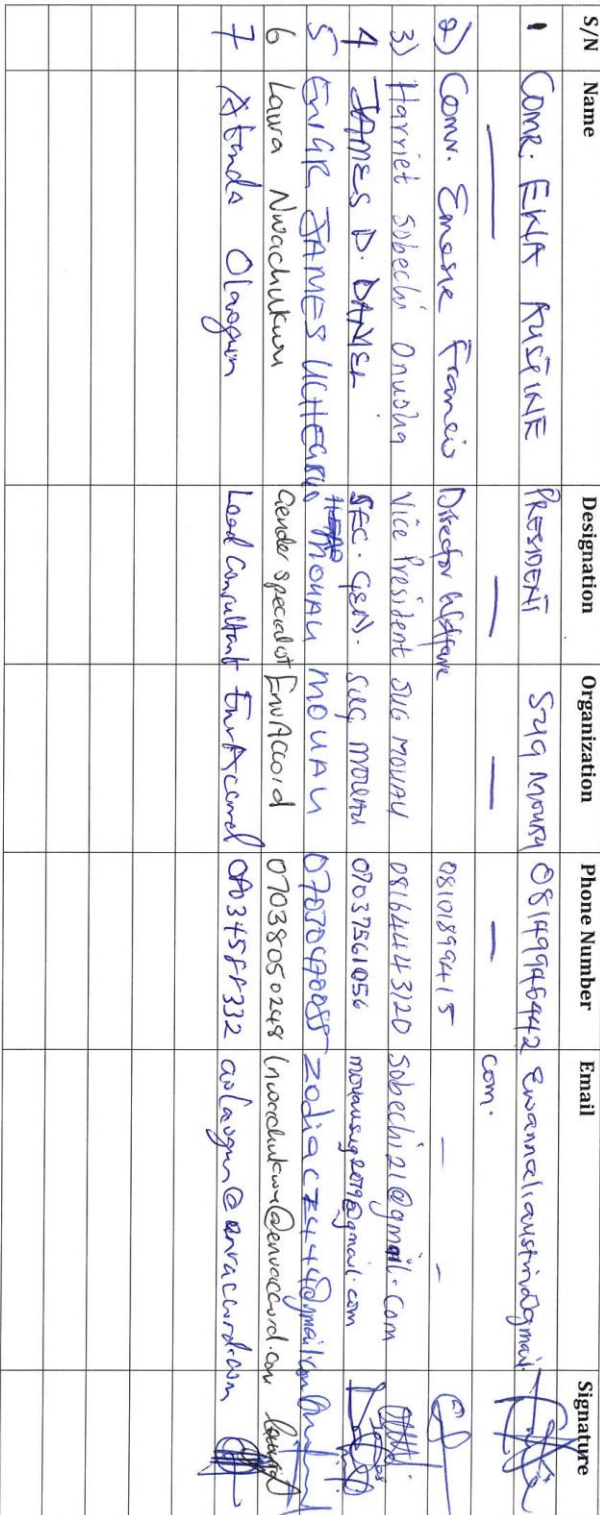 S/N Name Designation Organization Phone Number Email Signature
1 COMR. EWA AUSTINE PRESIDENT SUG MOUAU 08149946442 Ewannaliaustin@gmail.
— — — — com.
2) Comr. Emesie Francis Director Welfare 08101899415 - -
3) Harriet Sobechi Onuoha Vice President SUG MOUAU 08164443120 Sobechi21@gmail.com
4 JAMES D. DANIEL SEC. GEN. SUG MOUAU 07037561056 mouausug2019@gmail.com
5 ENGR JAMES UCHEGBU HEAD MOUAU MOUAU zodiacz444@gmail.com
6 Laura Nwachukwu Gender specialist EnvAccord 07038050248 lnwachukwu@envaccord.com
7 Atanda Olaogun Lead Consultant EnvAccord aolaogun@envaccord.com